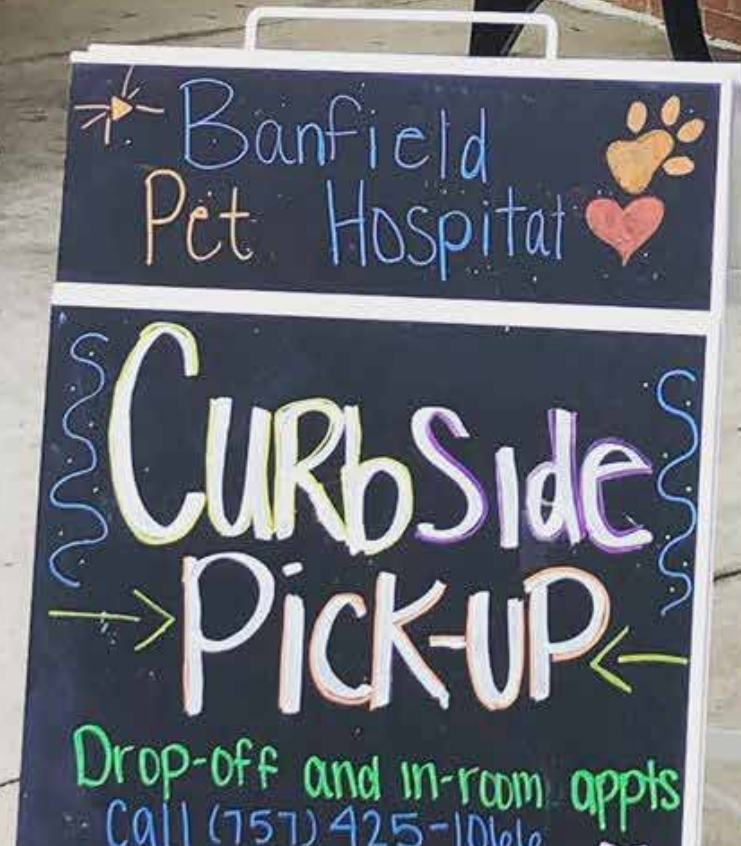 Banfield
Pet Hospital
CurbSide
Pick-up
Drop-off and in-room appts
Call (757) 425-1066